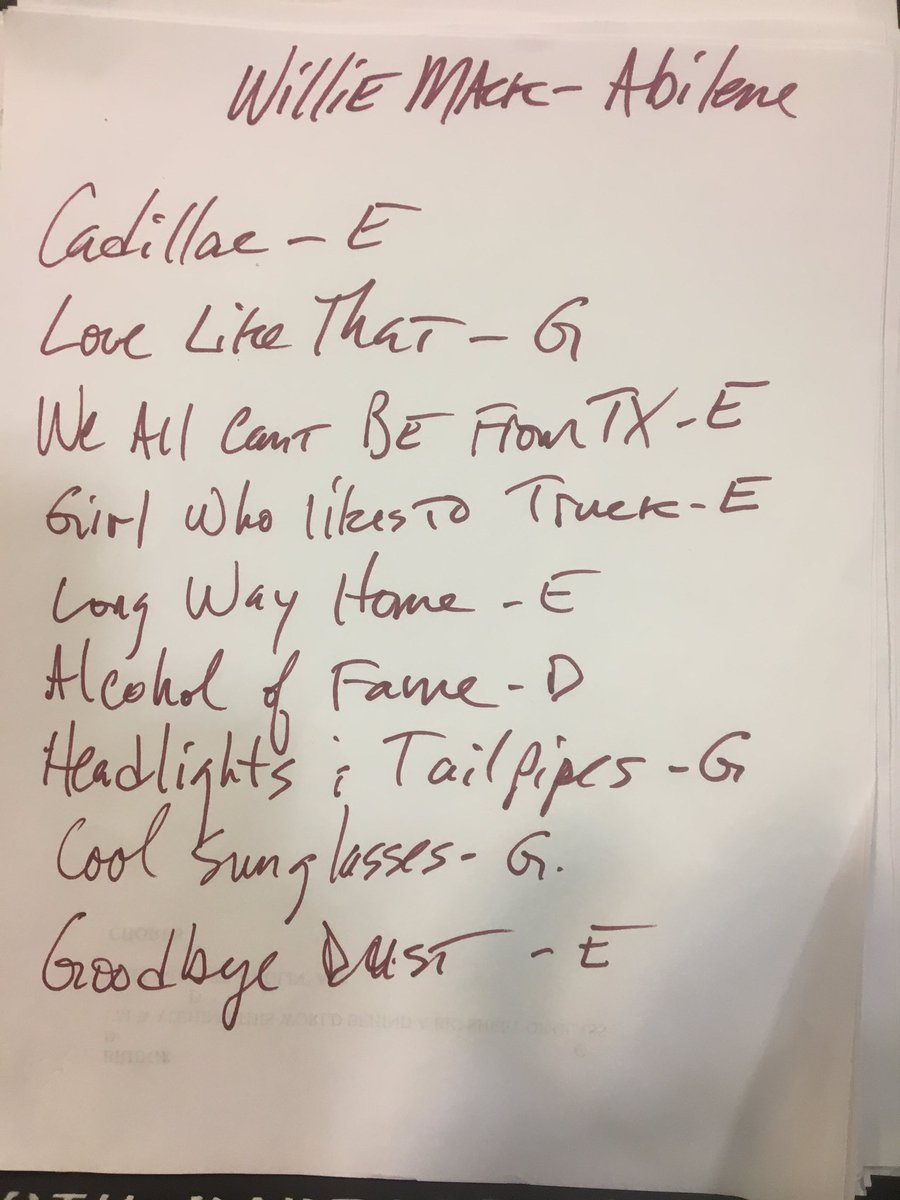 Willie Mack - Abilene
Cadillac - E
Love Like That - G
We All Cant Be From TX - E
Girl Who likes To Truck - E
Long Way Home - E
Alcohol of Fame - D
Headlights & Tailpipes - G
Cool Sunglasses - G.
Goodbye Dust - E